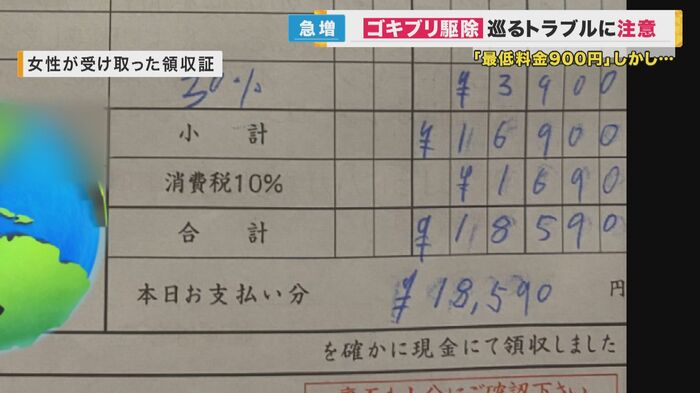 急増 ゴキブリ駆除 巡るトラブルに注意
「最低料金900円」しかし…
女性が受け取った領収証
30% ¥3900
小計 ¥16900
消費税10% ¥1690
合計 ¥18590
本日お支払い分 ¥18,590 円
を確かに現金にて領収しました